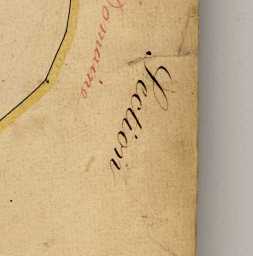 Domaine
Section